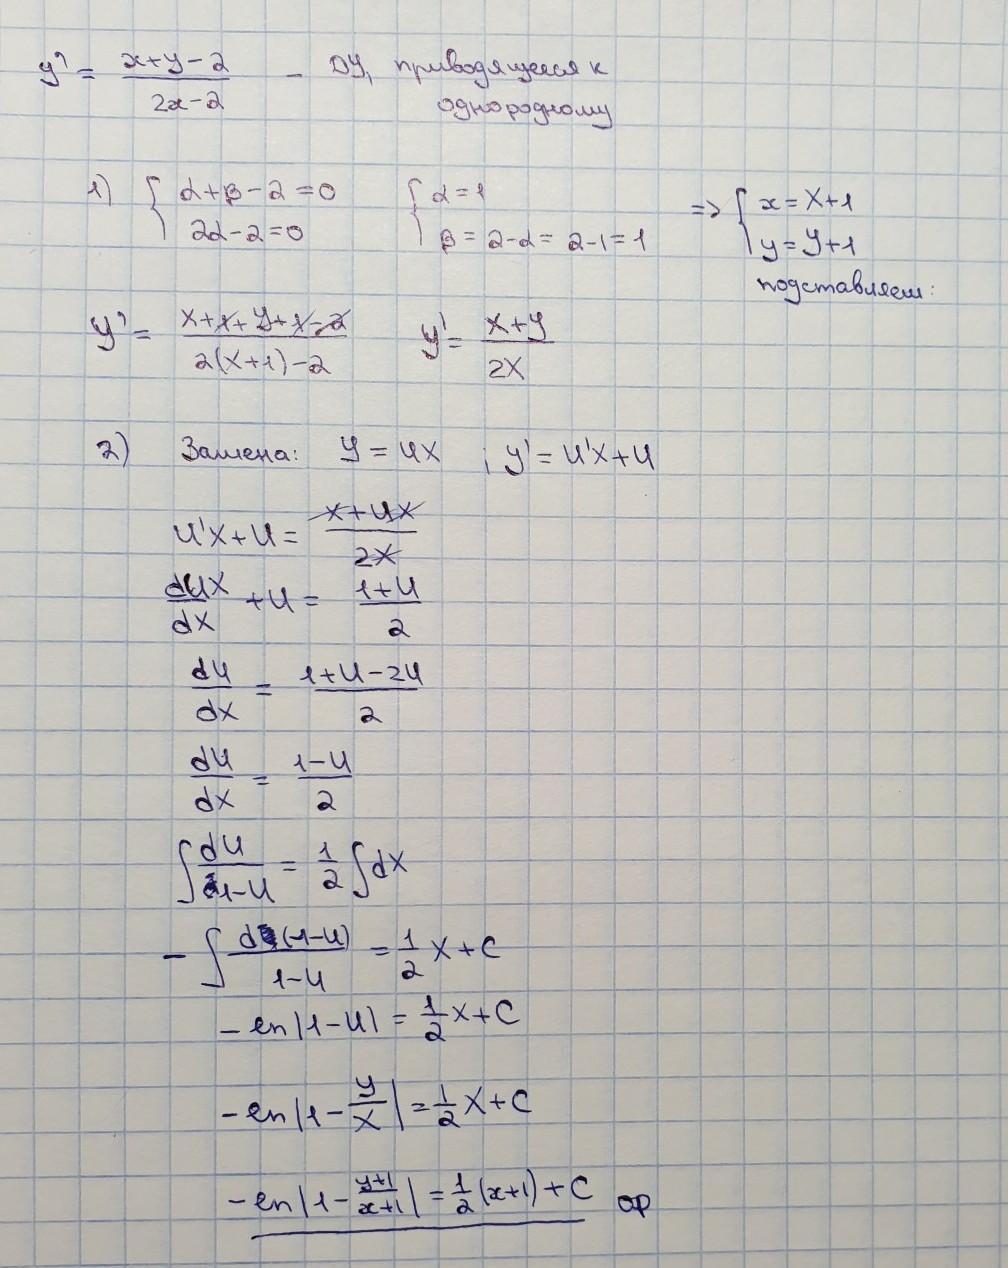 y' = (x+y-2)/(2x-2) - ДУ, приводящееся к
однородному
1) { α+β-2=0 { α=1 => { x=X+1
2α-2=0 β=2-α=2-1=1 y=Y+1
подставляем:
y' = (X+1+Y+1-2)/(2(X+1)-2) y' = (X+Y)/(2X)
2) Замена: Y=UX ; y'=U'X+U
U'X+U = (X+UX)/(2X)
dUX/dX +U = (1+U)/2
dU/dX = (1+U-2U)/2
dU/dX = (1-U)/2
∫ dU/(1-U) = 1/2 ∫dX
- ∫ d(1-U)/(1-U) = 1/2 X+C
-ln|1-U| = 1/2 X+C
-ln|1- Y/X| = 1/2 X+C
-ln|1- (y+1)/(x+1)| = 1/2 (x+1)+C ор